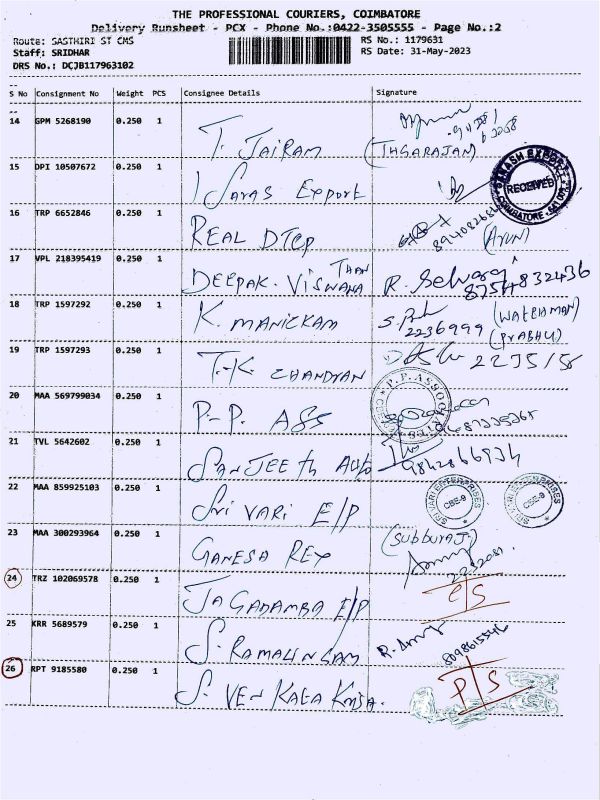 THE PROFESSIONAL COURIERS, COIMBATORE
Delivery Runsheet - PCX - Phone No.:0422-3505555 - Page No.:2
Route: SASTHIRI ST CMS
RS No.: 1179631
Staff: SRIDHAR
RS Date: 31-May-2023
DRS No.: DCJB117963102
S No Consignment No Weight PCS Consignee Details Signature
14 GPM 5268190 0.250 1 T. JAIRAM (THGARAJAN)
15 DPI 10507672 0.250 1 Saras Export RECEIVED COIMBATORE
16 TRP 6652846 0.250 1 REAL DTCP (ARUN)
17 VPL 218395419 0.250 1 DEEPAK. VISWANATHAN R. Selvaraj 8754832436
18 TRP 1597292 0.250 1 K. MANICKAM (WATCHMAN)
2236999 (PRABHU)
19 TRP 1597293 0.250 1 T.K. CHANDRAN 2235158
20 MAA 569799034 0.250 1 P-P. ASS P.P. ASSOCIATES
21 TVL 5642602 0.250 1 SANJEETH Auto 9842866934
22 MAA 859925103 0.250 1 Sri VARI E/P SRI VARI ENTERPRISES CBE-9 SRI VARI ENTERPRISES CBE-9
23 MAA 300293964 0.250 1 GANESA REY (SUBBURAJ)
24 TRZ 102069578 0.250 1 JAGADAMBA E/P
25 KRR 5689579 0.250 1 S. RAMALINGAM 8098615546
26 RPT 9185580 0.250 1 S. VENKATA P/S